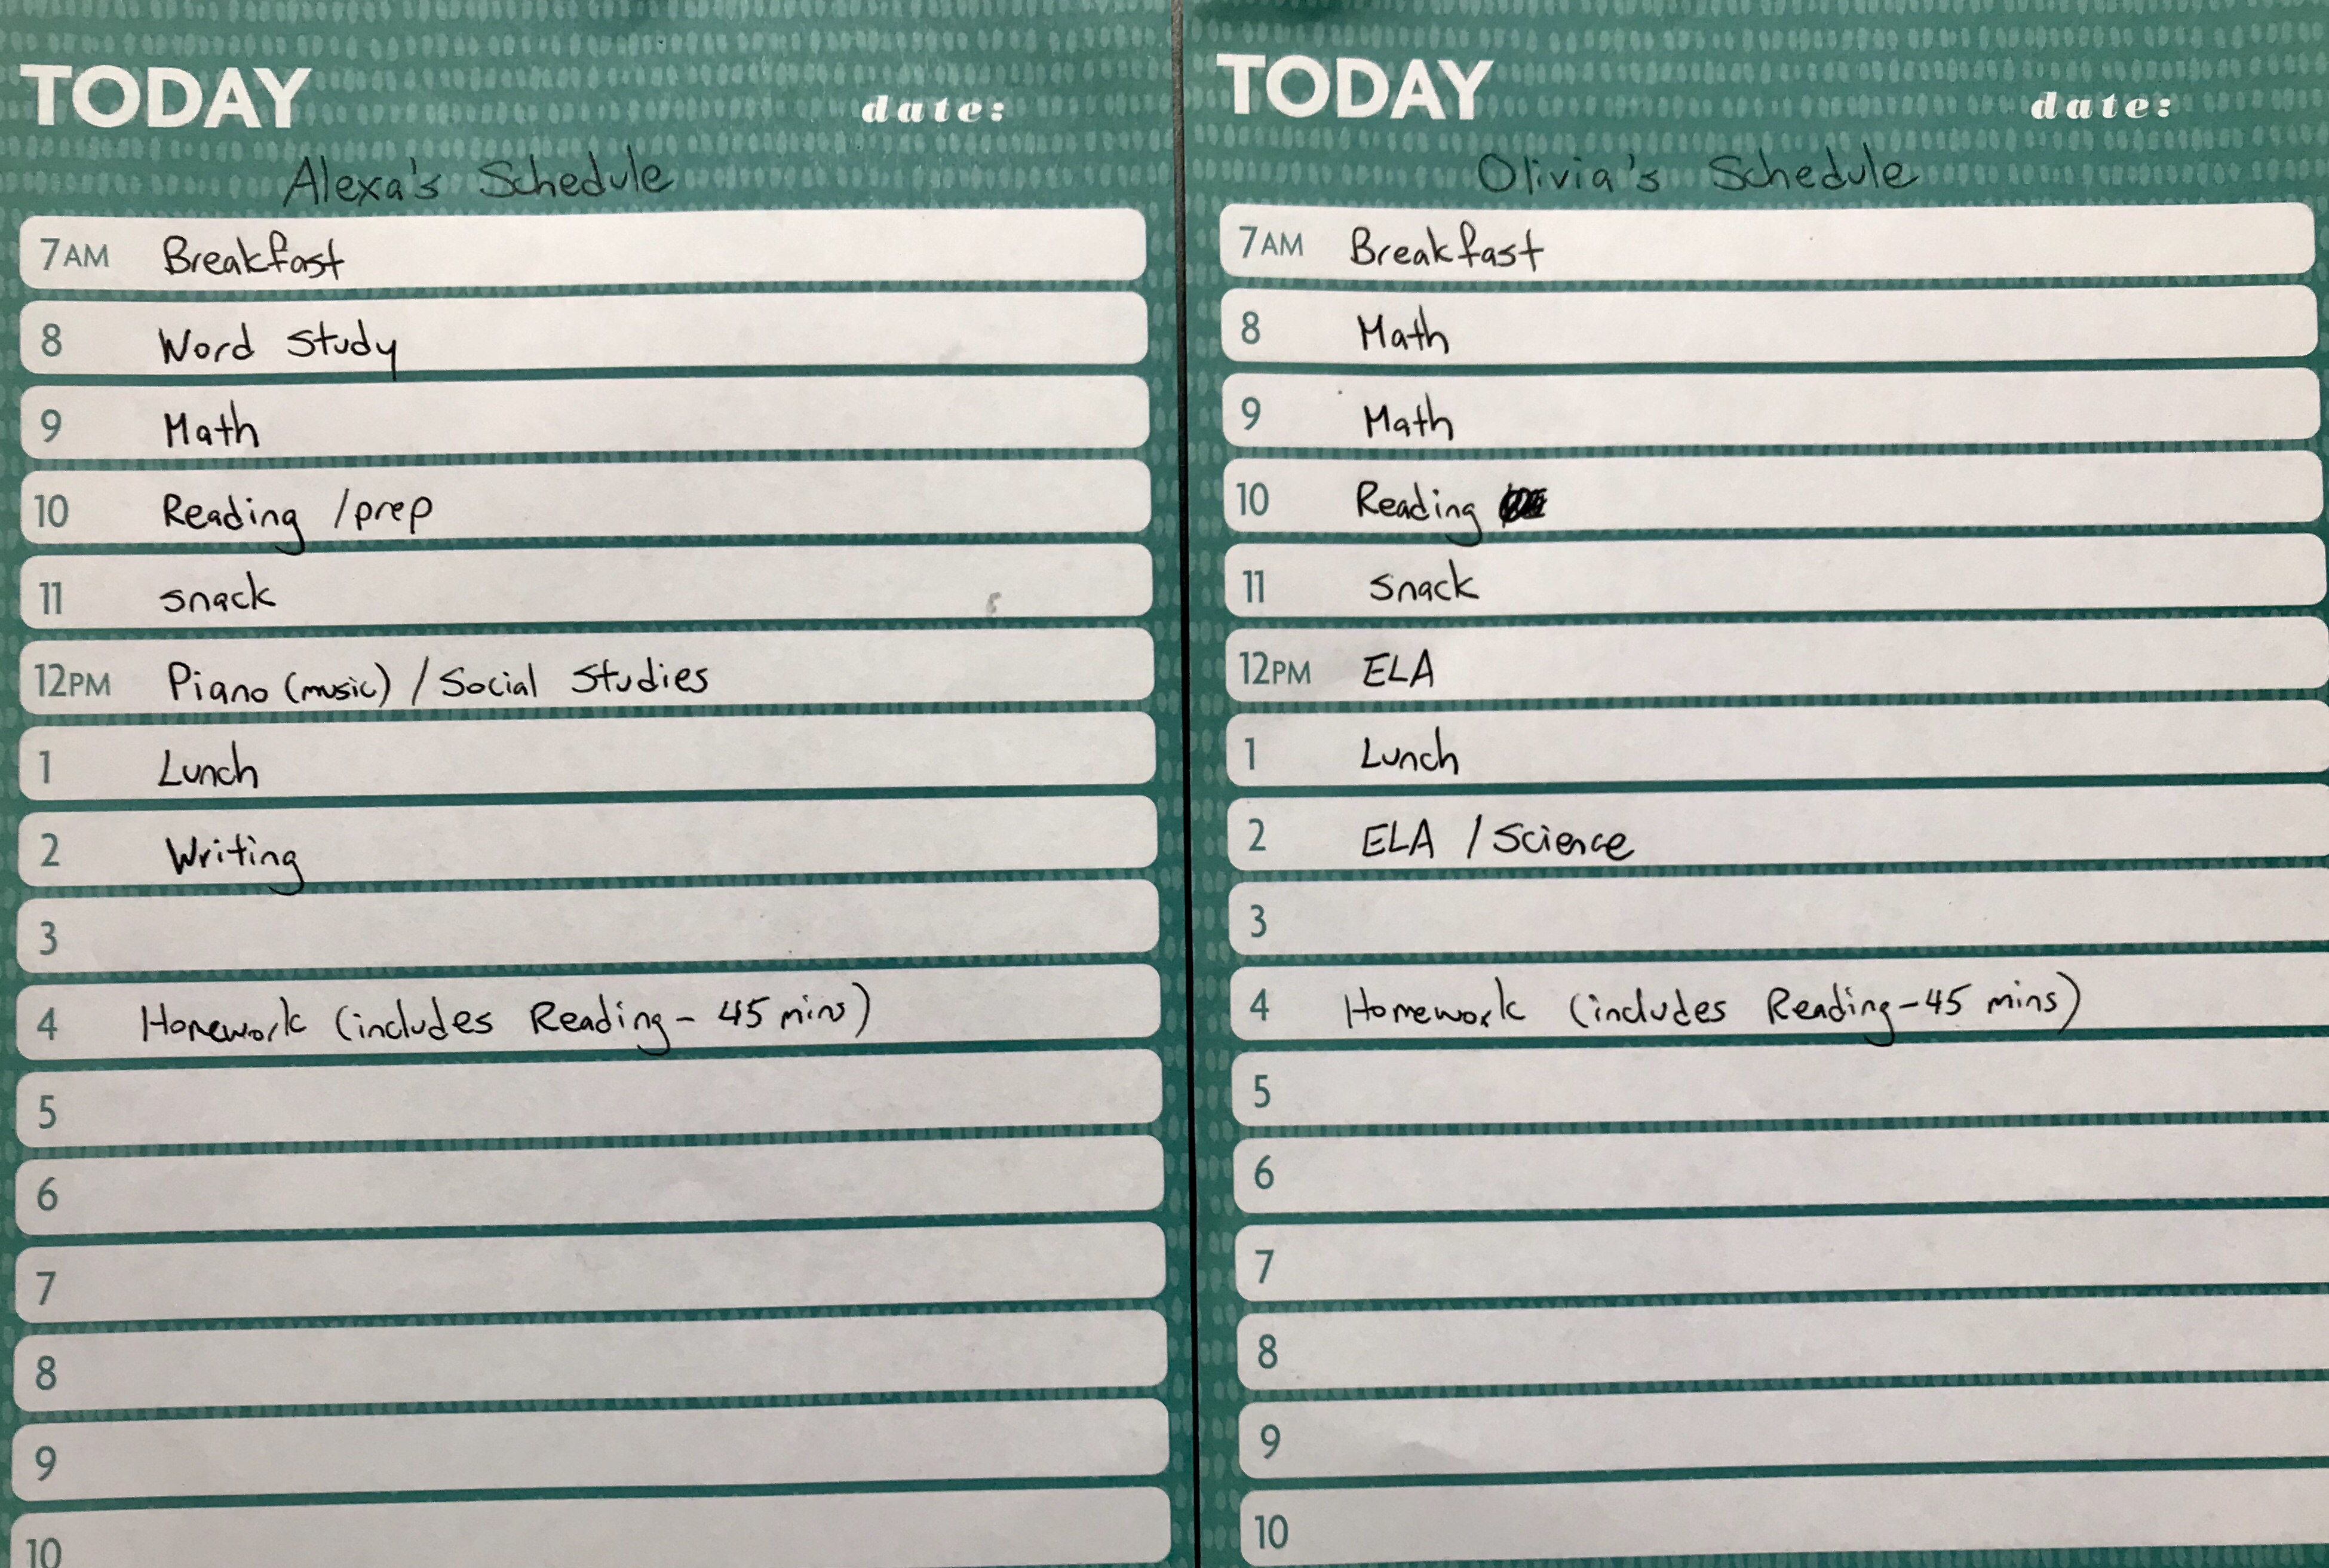 TODAY date:
Alexa's Schedule
7AM Breakfast
8 Word Study
9 Math
10 Reading /prep
11 snack
12PM Piano (music) / Social Studies
1 Lunch
2 Writing
3
4 Homework (includes Reading - 45 mins)
5
6
7
8
9
10
TODAY date:
Olivia's Schedule
7AM Breakfast
8 Math
9 Math
10 Reading
11 snack
12PM ELA
1 Lunch
2 ELA / Science
3
4 Homework (includes Reading - 45 mins)
5
6
7
8
9
10